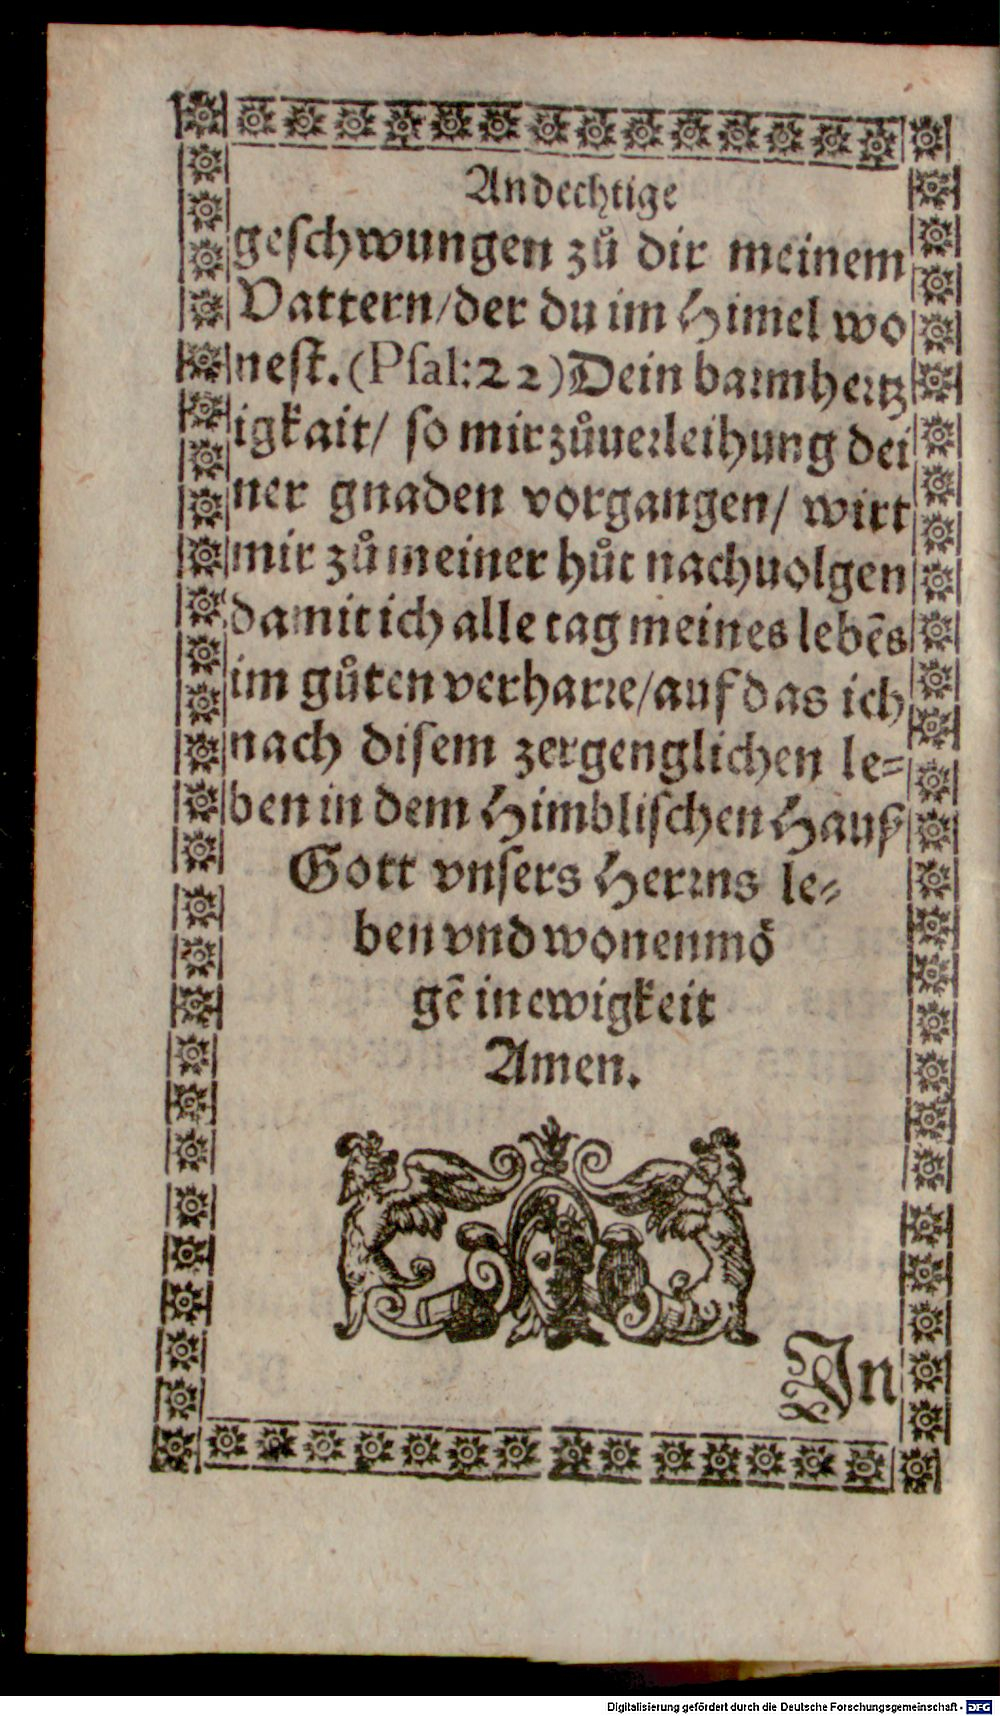 Andechtige
geſchwungen zů dir meinem
Vattern/der du im Himel wo
neſt. (Pſal: 22) Dein barmhertz
igkait/ ſo mir zůuerleihung dei
ner gnaden vorgangen/ wirt
mir zů meiner hůt nachuolgen
damit ich alle tag meines lebēs
im gůten verharre/auf das ich
nach diſem zergenglichen le-
ben in dem Himbliſchen Hauß
Gott vnſers Herrns le-
ben vnd wonen mö
gē in ewigkeit
Amen.
In
Digitalisierung gefördert durch die Deutsche Forschungsgemeinschaft - DFG